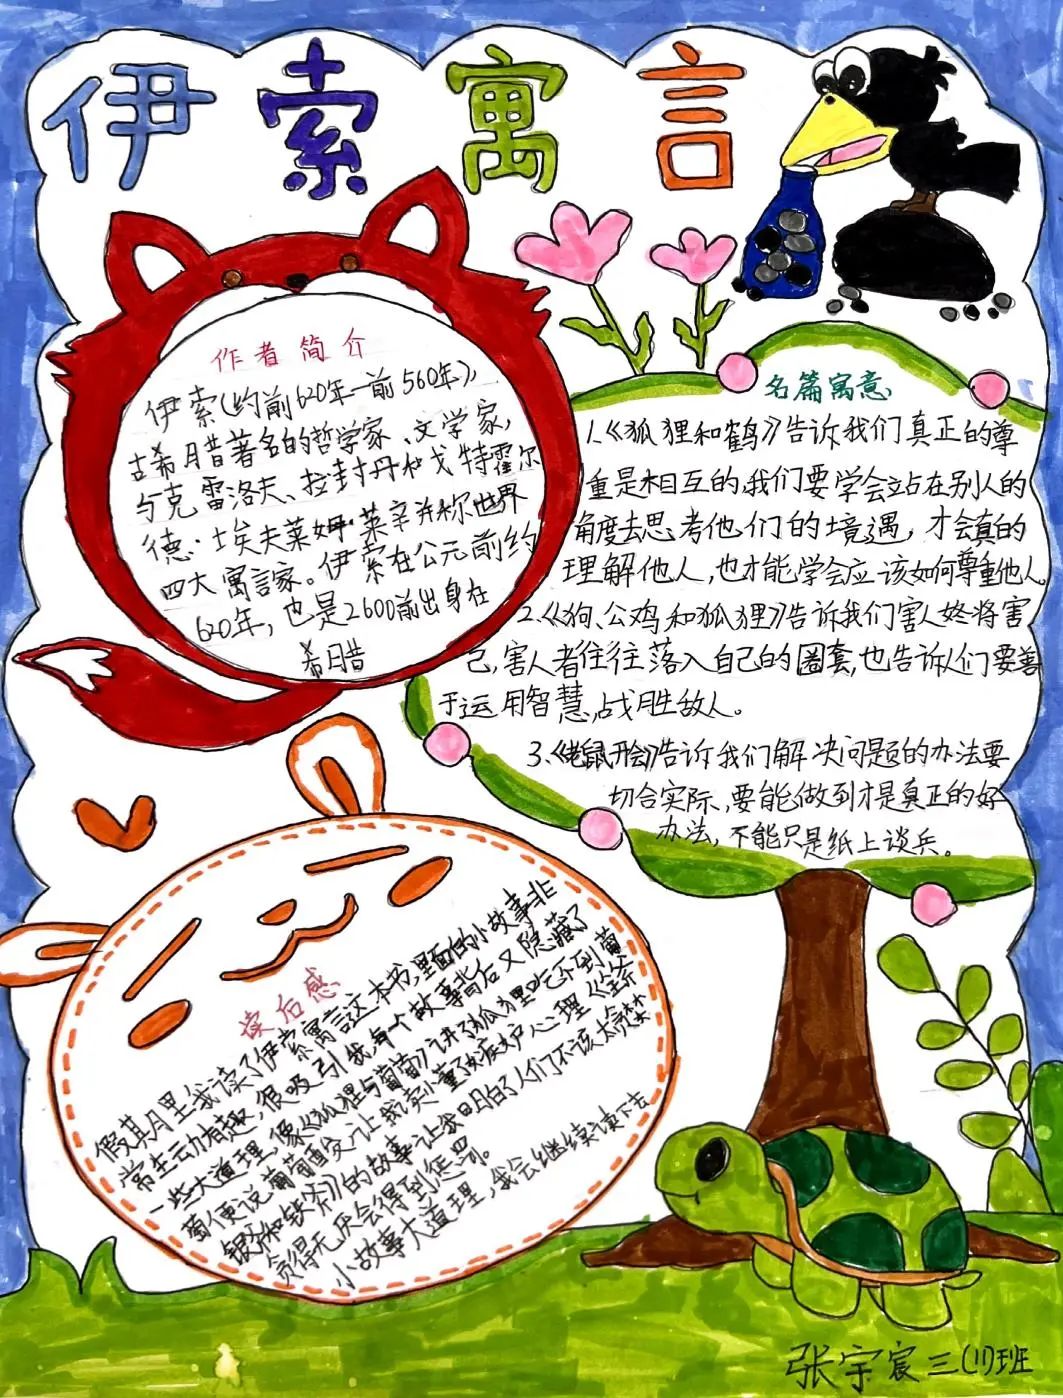 伊索寓言
作者简介
伊索(约前620年—前560年),
古希腊著名的哲学家、文学家,
与克雷洛夫、拉封丹和戈特霍尔
德·埃夫莱姆·莱辛并称世界
四大寓言家。伊索在公元前约
620年,也是2600前出身在
希腊
名篇寓意
1.《狐狸和鹤》告诉我们真正的尊
重是相互的,我们要学会站在别人的
角度去思考他们的境遇,才会真的
理解他人,也才能学会应该如何尊重他人。
2.《狗、公鸡和狐狸》告诉我们害人终将害
己,害人者往往落入自己的圈套,也告诉人们要善
于运用智慧,战胜敌人。
3.《老鼠开会》告诉我们解决问题的办法要
切合实际,要能做到才是真正的好
办法,不能只是纸上谈兵。
读后感
假其月里我读了伊索寓言这本书,里面的小故事非
常生动有趣,很吸引我,每个故事背后又隐藏了
一些大道理,像《狐狸与葡萄》讲了狐狸吃不到葡
萄便说葡萄酸,让我读懂了嫉妒心理《金斧
银斧和铁斧》的故事让我明白了人们不该太贪婪
贪得无厌会得到惩罚。
小故事大道理,我会继续读下去
张宇宸三(11)班